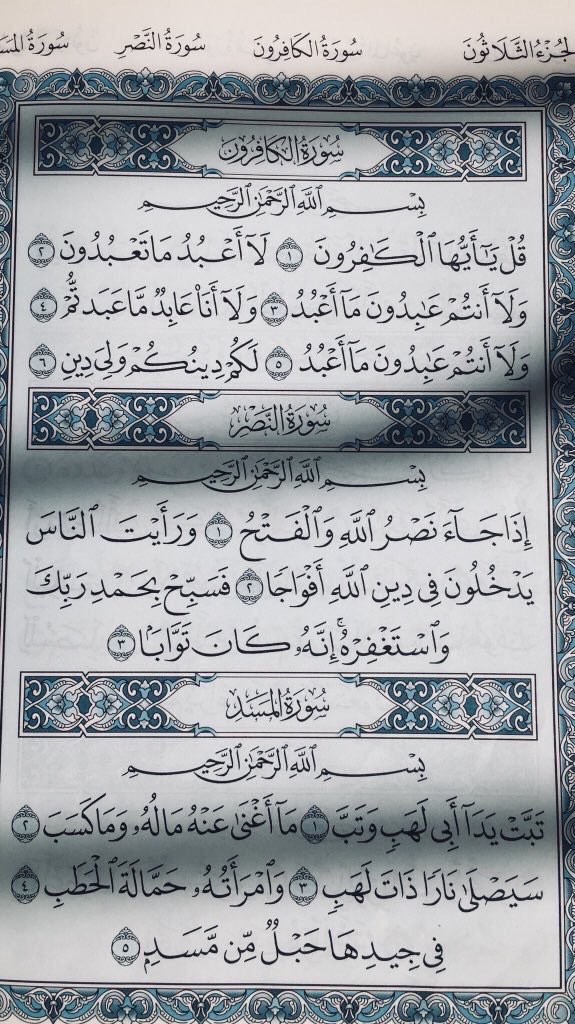 الجزء الثلاثون سورة الكافرون سورة النصر سورة المسد
سُورَةُ الكَافِرُون
بِسْمِ ٱللَّهِ ٱلرَّحْمَٰنِ ٱلرَّحِيمِ
قُلْ يَـٰٓأَيُّهَا ٱلْكَـٰفِرُونَ ١ لَآ أَعْبُدُ مَا تَعْبُدُونَ ٢
وَلَآ أَنتُمْ عَـٰبِدُونَ مَآ أَعْبُدُ ٣ وَلَآ أَنَا۠ عَابِدٌ مَّا عَبَدتُّمْ ٤
وَلَآ أَنتُمْ عَـٰبِدُونَ مَآ أَعْبُدُ ٥ لَكُمْ دِينُكُمْ وَلِىَ دِينِ ٦
سُورَةُ النَّصْرِ
بِسْمِ ٱللَّهِ ٱلرَّحْمَٰنِ ٱلرَّحِيمِ
إِذَا جَآءَ نَصْرُ ٱللَّهِ وَٱلْفَتْحُ ١ وَرَأَيْتَ ٱلنَّاسَ
يَدْخُلُونَ فِى دِينِ ٱللَّهِ أَفْوَاجًا ٢ فَسَبِّحْ بِحَمْدِ رَبِّكَ
وَٱسْتَغْفِرْهُ ۚ إِنَّهُۥ كَانَ تَوَّابًۢا ٣
سُورَةُ المَسَدِ
بِسْمِ ٱللَّهِ ٱلرَّحْمَٰنِ ٱلرَّحِيمِ
تَبَّتْ يَدَآ أَبِى لَهَبٍ وَتَبَّ ١ مَآ أَغْنَىٰ عَنْهُ مَالُهُۥ وَمَا كَسَبَ ٢
سَيَصْلَىٰ نَارًا ذَاتَ لَهَبٍ ٣ وَٱمْرَأَتُهُۥ حَمَّالَةَ ٱلْحَطَبِ ٤
فِى جِيدِهَا حَبْلٌ مِّن مَّسَدٍۭ ٥